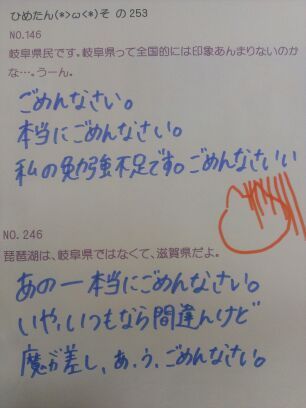 ひめたん(*>ω<*)そ の253
NO.146
岐阜県民です。岐阜県って全国的には印象あんまりないのか
な…。うーん。
ごめんなさい。
本当にごめんなさい。
私の勉強不足です。ごめんなさいい
NO.246
琵琶湖は、岐阜県ではなくて、滋賀県だよ。
あのー本当にごめんなさい。
いや、いつもなら間違んけど
魔が差し、あ、う、ごめんなさい。